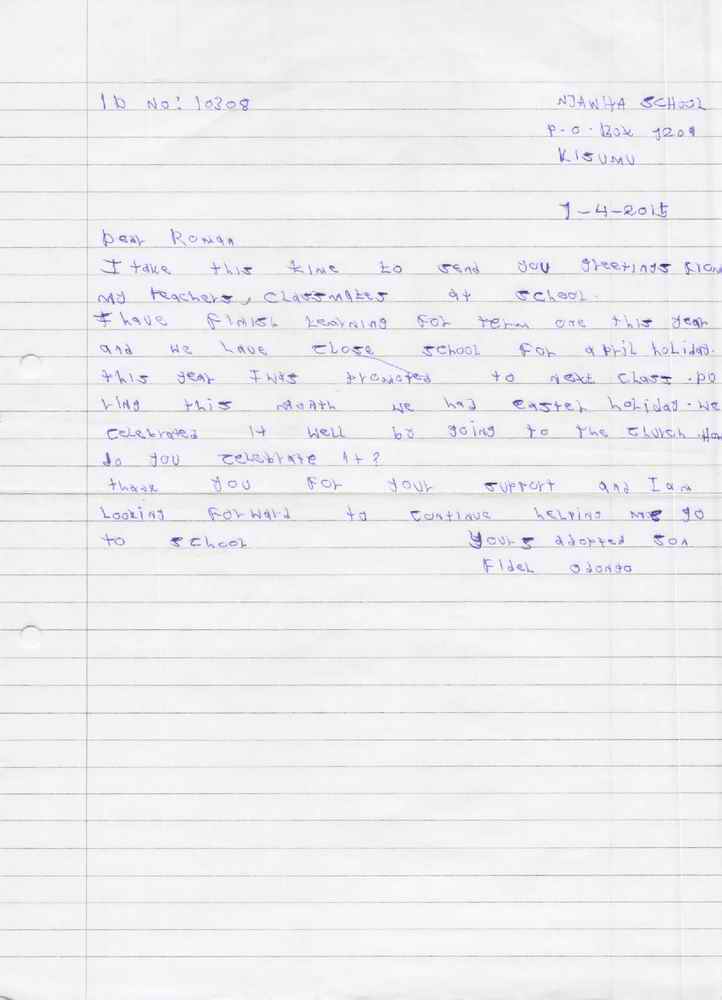 ID NO: 10308
NJAWHA SCHOOL
P.O. Box 9209
KISUMU
9-4-2015
Dear Roman
I take this time to send you greetings from
my teachers, classmates at school.
I have finish learning for term one this year
and we have close school for april holiday.
this year I was promoted to next class. Du
ring this month we had easter holiday. We
celebrated it well by going to the church. How
do you celebrate it?
thank you for your support and I am
Looking forward to continue helping me go
to school
Yours adopted son
Fidel Odongo